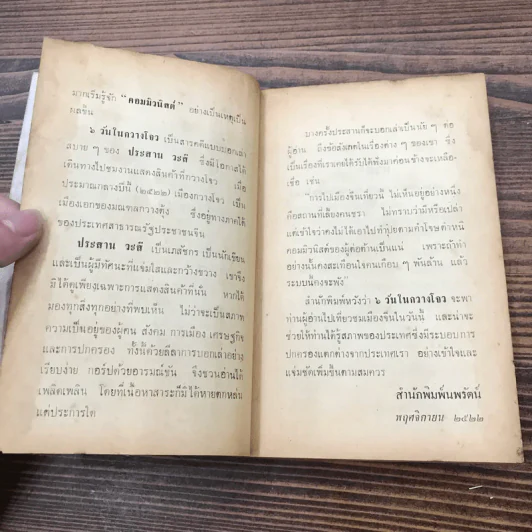 มากเริ่มรู้จัก "คอมมิวนิสต์" อย่างเป็นเหตุเป็น
ผลขึ้น
๖ วันในกวางโจว เป็นสารคดีแบบบอกเล่า
สบาย ๆ ของ ประสาน วะสี ซึ่งมีโอกาสได้
เดินทางไปชมงานแสดงสินค้าที่กวางโจว เมื่อ
ประมาณกลางปีนี้ (๒๕๒๒) เมืองกวางโจว เป็น
เมืองเอกของมณฑลกวางตุ้ง ซึ่งอยู่ทางภาคใต้
ของประเทศสาธารณรัฐประชาชนจีน
ประสาน วะสี เป็นเภสัชกร เป็นนักเขียน
และเป็นผู้มีทัศนะที่แจ่มใสและกว้างขวาง เขาจึง
มิได้ดูเพียงเฉพาะการแสดงสินค้าที่นั่น หากได้
มองทุกสิ่งทุกอย่างที่พบเห็น ไม่ว่าจะเป็นสภาพ
ความเป็นอยู่ของผู้คน สังคม การเมือง เศรษฐกิจ
และการปกครอง ทั้งนี้ด้วยลีลาการบอกเล่าอย่าง
เรียบง่าย กอร์ปด้วยอารมณ์ขัน จึงชวนอ่านได้
เพลิดเพลิน โดยที่เนื้อหาสาระก็มิได้หายตกหล่น
แต่ประการใด
บางครั้งประสานก็จะบอกเล่าเป็นนัย ๆ ต่อ
ผู้อ่าน ถึงข้อสังเกตในเรื่องต่าง ๆ ของเขา ซึ่ง
เป็นเรื่องที่เราเคยได้รับได้ฟังมาค่อนข้างจะเหลือ-
เชื่อ เช่น
"การไปเมืองจีนเที่ยวนี้ ไม่เห็นอยู่อย่างหนึ่ง
คือสถานที่เลี้ยงคนชรา ไม่ทราบว่ามีหรือเปล่า
คอมมิวนิสต์ของผู้ต่อต้านเป็นแน่ เพราะถ้าทำ
อย่างนั้นคงสะเทือนใจคนเกือบ ๆ พันล้าน แล้ว
ระบบนี้คงจะพัง"
สำนักพิมพ์หวังว่า ๖ วันในกวางโจว จะพา
ท่านผู้อ่านไปเที่ยวชมเมืองจีนในวันนี้ และน่าจะ
ช่วยให้ท่านได้รู้สภาพของประเทศซึ่งมีระบอบการ
ปกครองแตกต่างจากประเทศเรา อย่างเข้าใจและ
แจ่มชัดเพิ่มขึ้นตามสมควร
สำนักพิมพ์นพรัตน์
พฤศจิกายน ๒๕๒๒